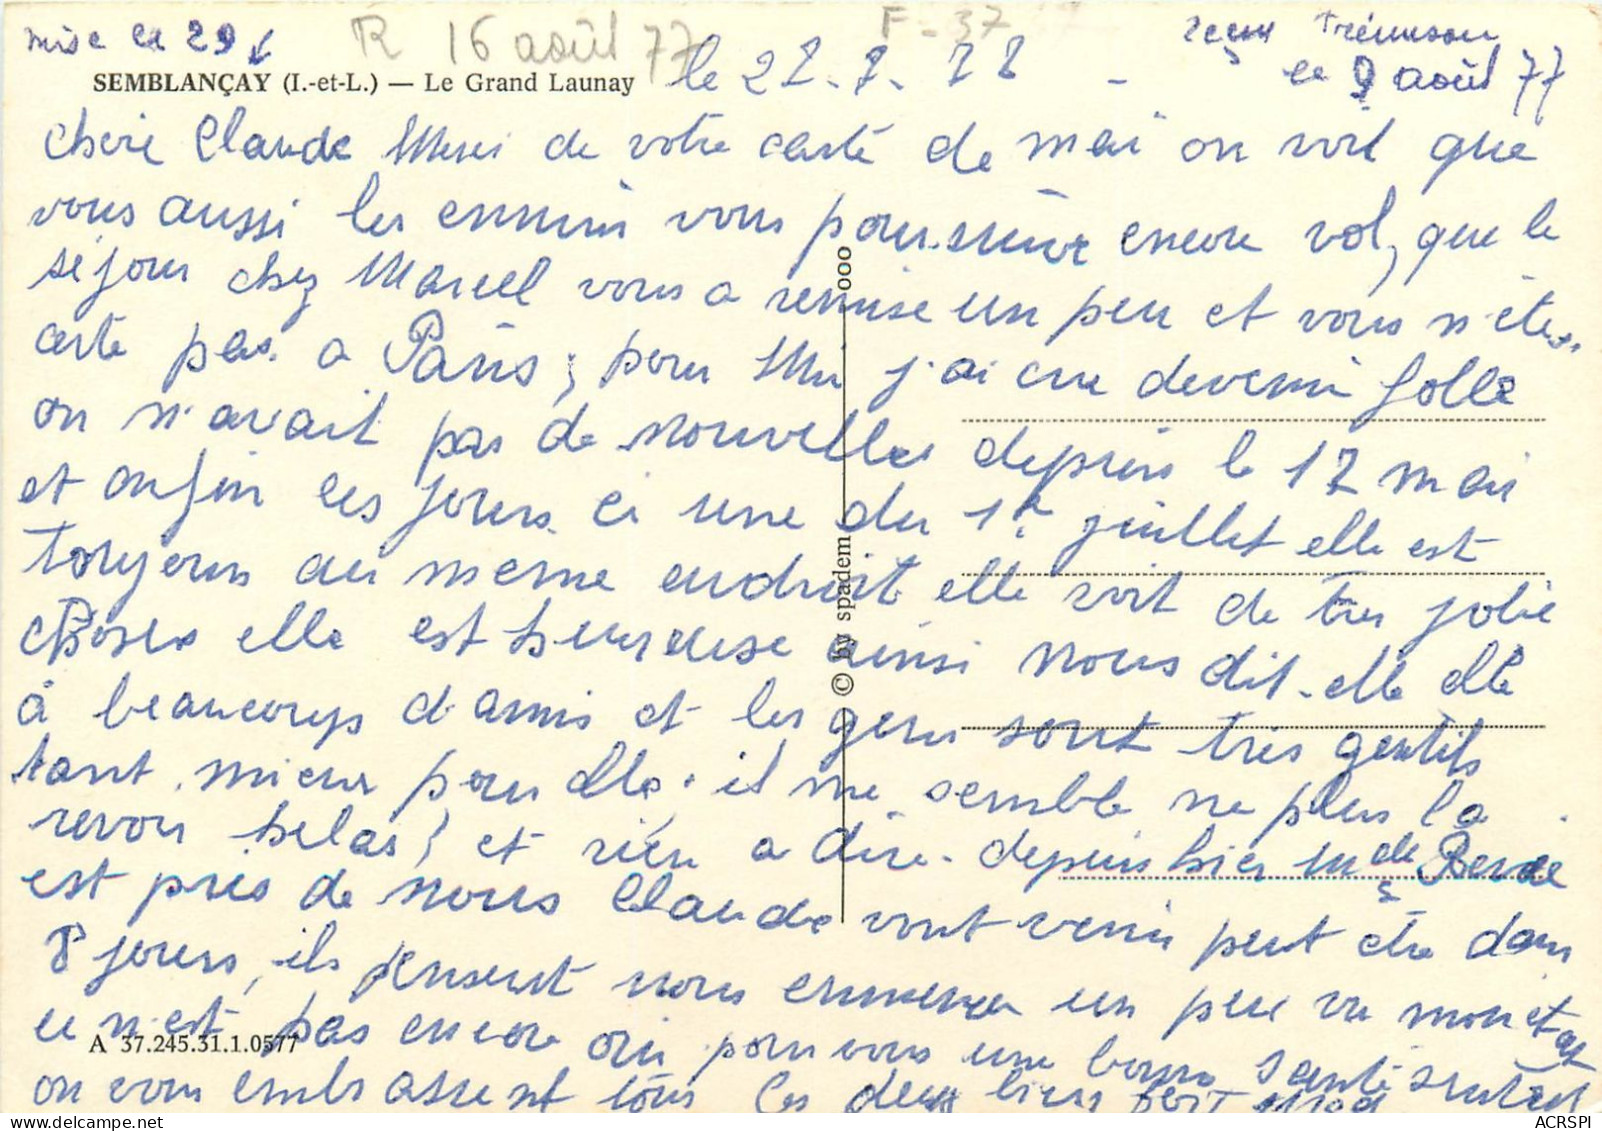 mise le 29
R 16 août 77
F-37
reçu Trémuson
le 9 août 77
SEMBLANÇAY (I.-et-L.) — Le Grand Launay
le 28.7.77
Chère Claude Merci de votre carte de mai on voit que
vous aussi les ennuis vous poursuive encore vol, que le
séjour chez Marcel vous a remise un peu et vous n'êtes
certe pas a Paris, pour Moi j'ai cru devenir folle
on n'avait pas de nouvelles depuis le 17 mai
et enfin ces jours ci une du 1r juillet elle est
toujours au meme endroit elle voit de très jolie
choses elle est heureuse ainsi nous dit-elle elle
à beaucoup d'amis et les gens sont très gentils
tant mieux pour elle. il me semble ne plus la
revoir helas! et rien a dire. depuis hier Mde
est près de nous Claude vont venir peut etre dans
8 jours, ils pensent nous emmener un peu vu mon etat
ce n'est pas encore ça pour vous une bonne santé
on vous embrassent tous les deux bien fort
ooo
© by spadem
A 37.245.31.1.0577
ACRSPI